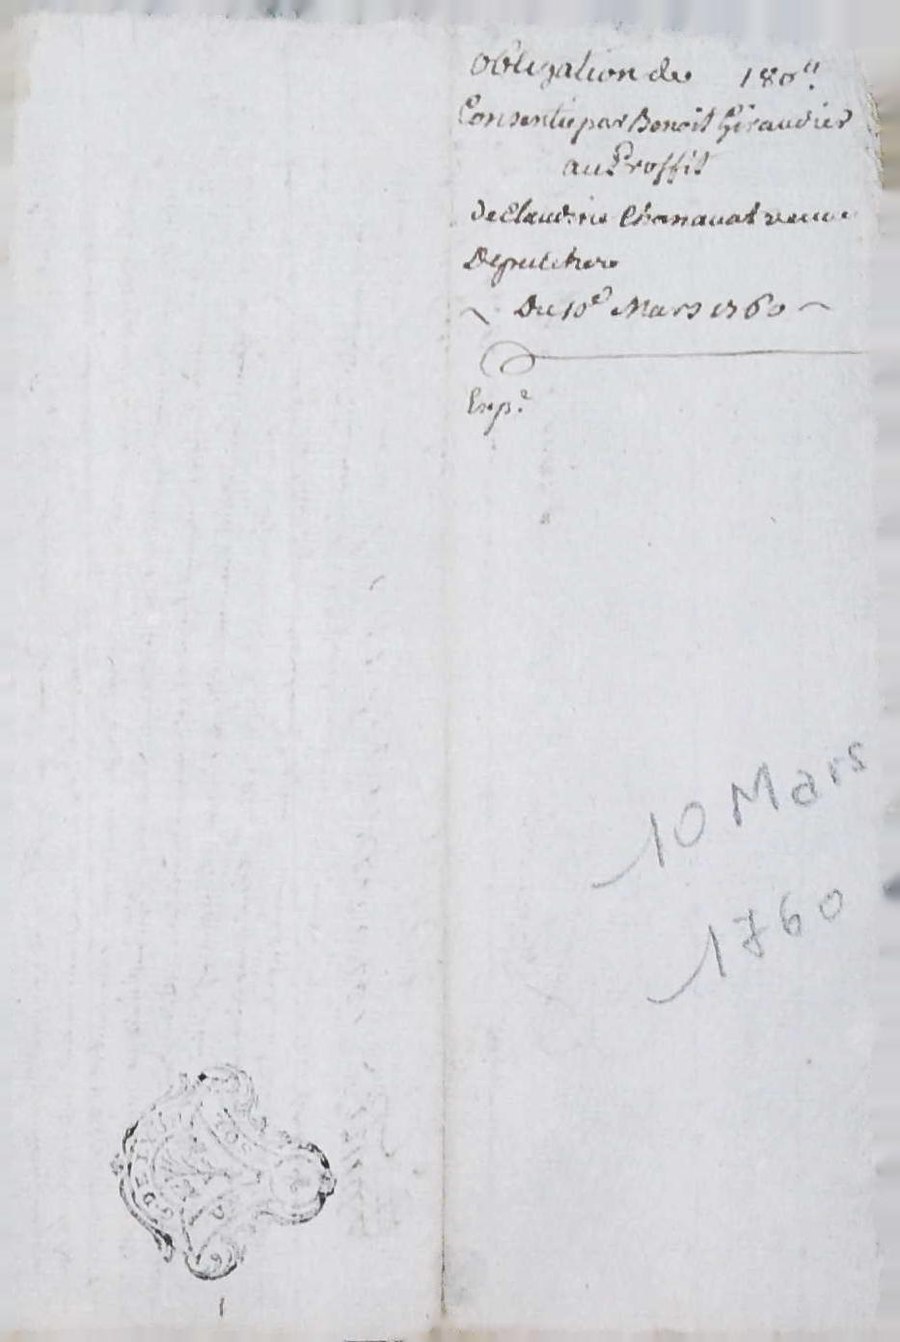 obligation de 180ᵗᵗ.
Consentie par Benoit Giraudier
au Proffit
de Claudine Chanavat veuve
Du 10ᵉ Mars 1760
Exp.ᵉ
10 Mars
1760